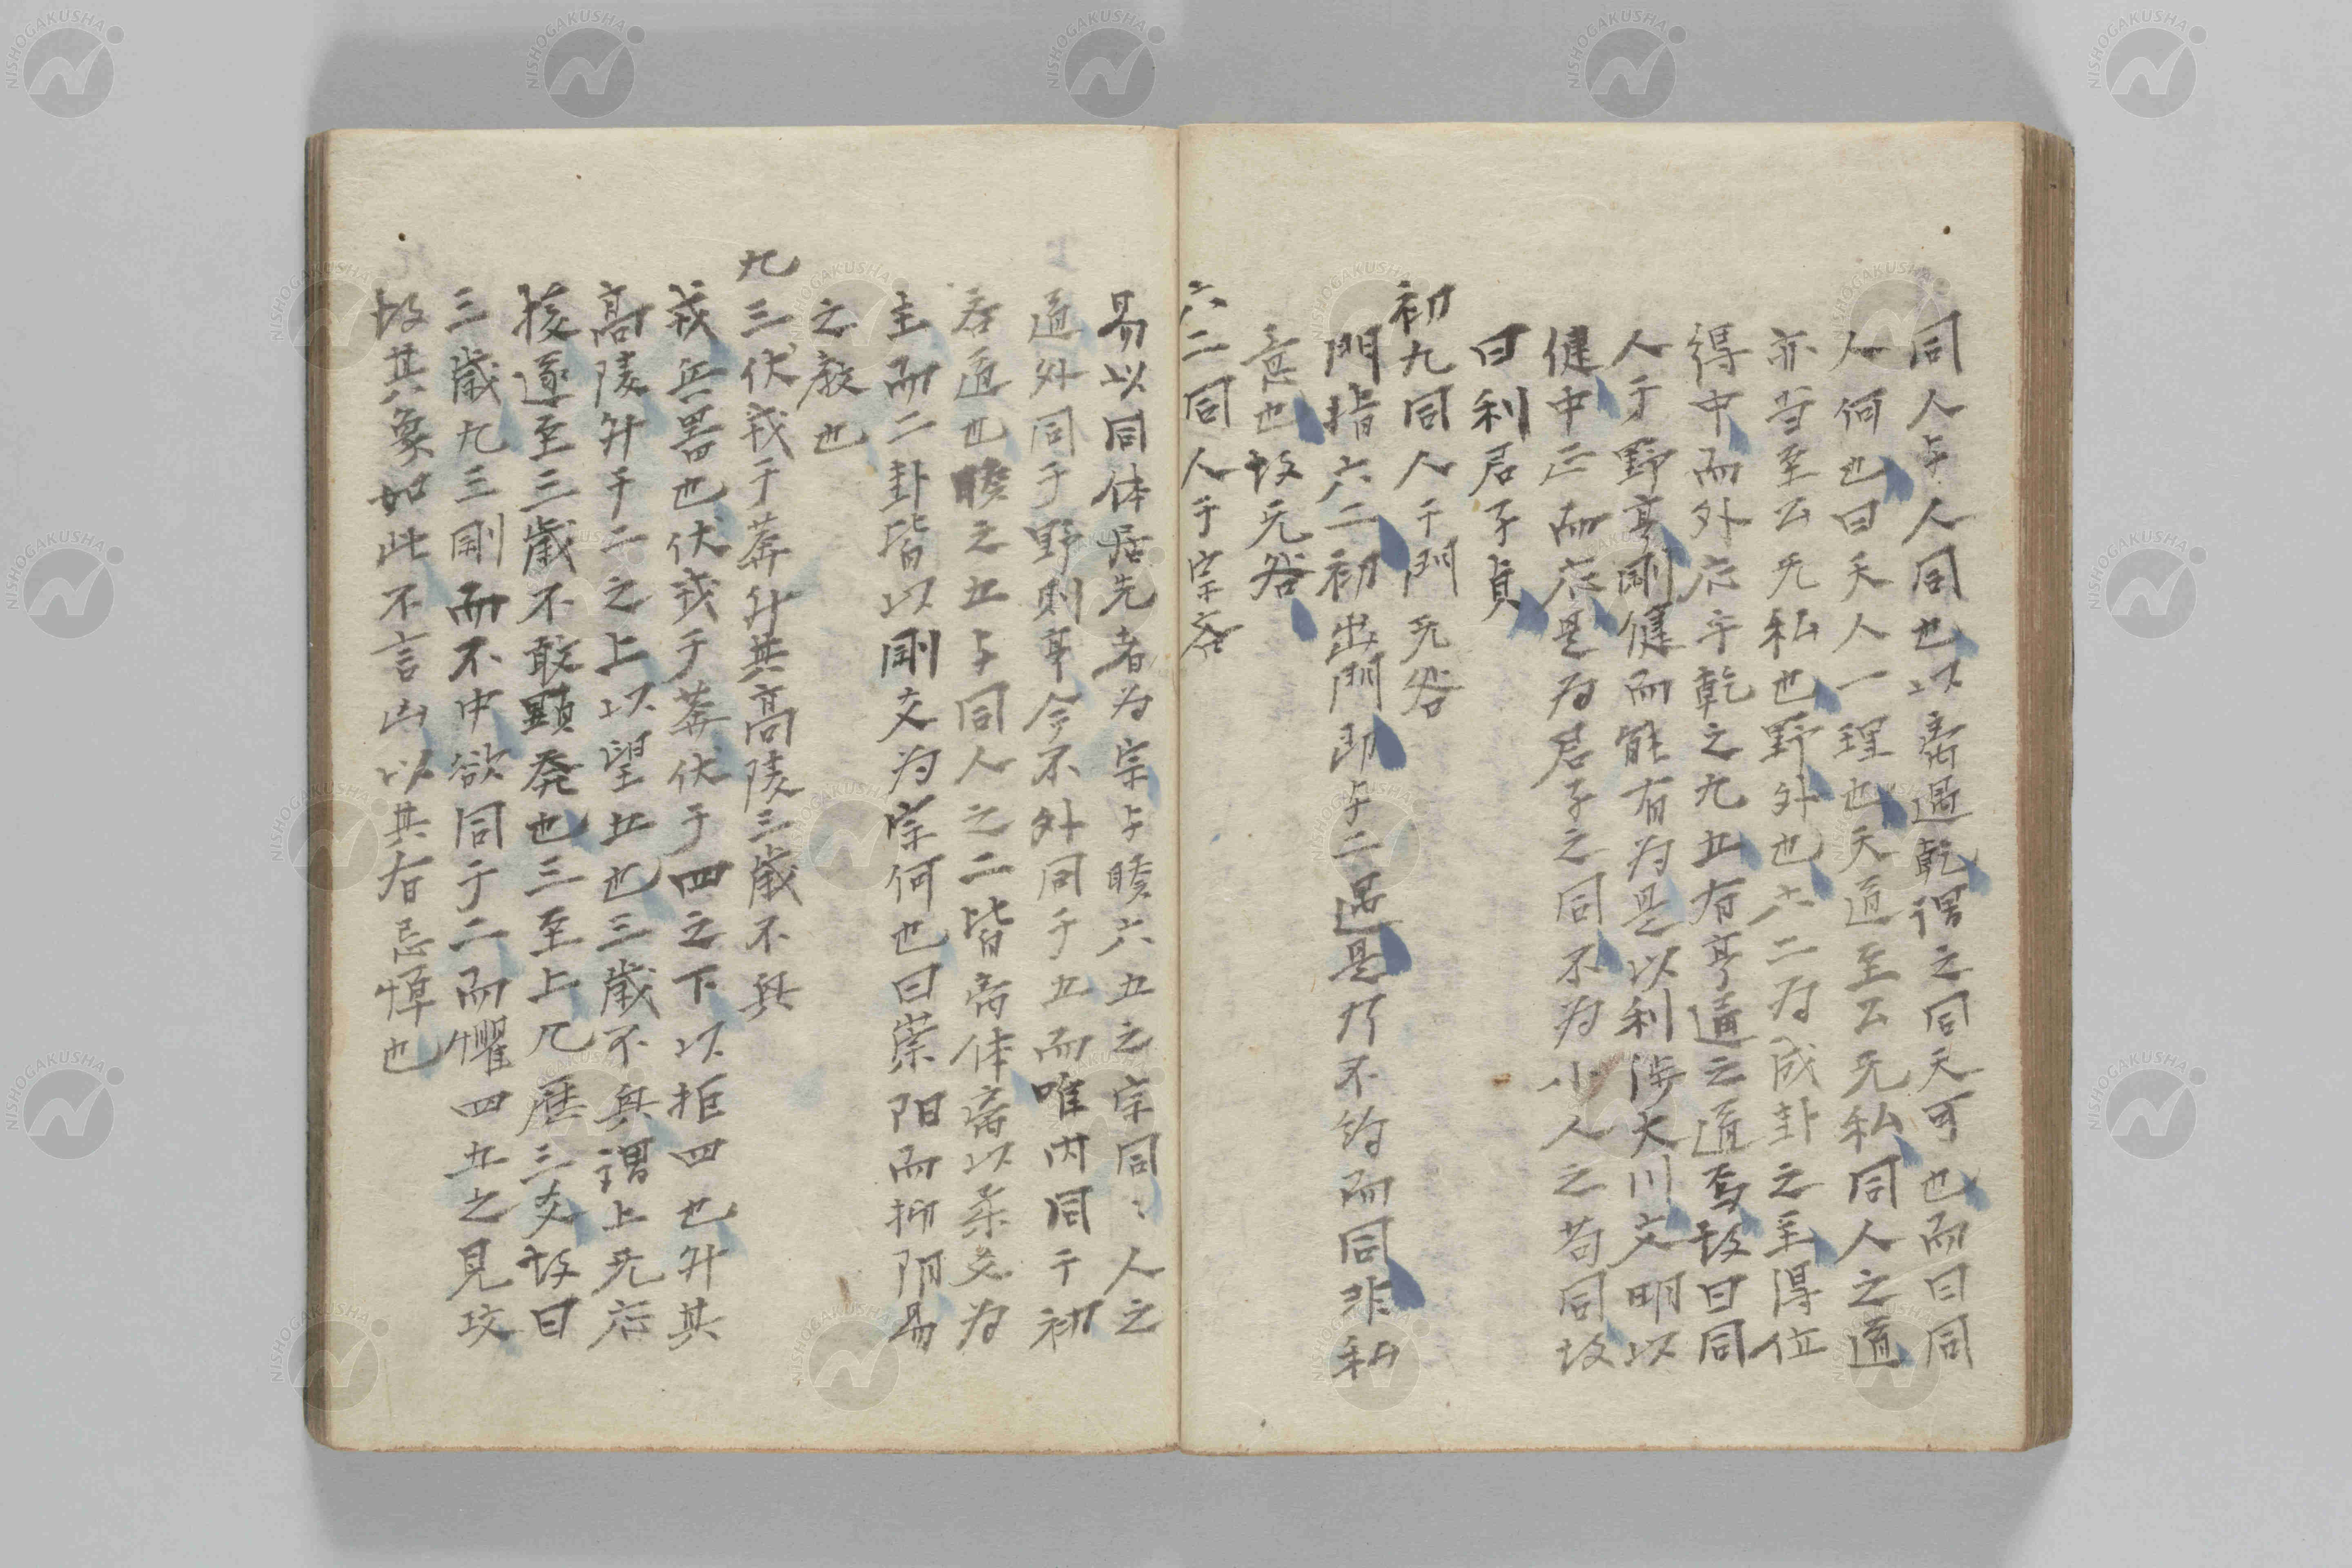 同人与人同也以离遇乾謂之同天可也而曰同
人何也曰天人一理也天道至公无私同人之道
亦当至公无私也野外也六二為成卦之主得位
得中而外応乎乾之九五有亨通之道焉故曰同
人于野亨剛健而能有為是以利渉大川文明以
健中正而応是為君子之同不為小人之苟同故
曰利君子貞
初九同人于門无咎
門指六二初出門即与二遇是乃不約而同非私
意也故无咎
六二同人于宗吝
易以同体居先者為宗与睽六五之宗同〻人之
道外同于野則亨今不外同于五而唯内同于初
吝道也睽之五与同人之二皆离体离以柔爻為
主而二卦皆以剛爻為宗何也曰崇陽而抑陰易
之教也
九三伏戎于莽升其高陵三歳不興
戎兵器也伏戎于莽伏于四之下以拒四也升其
高陵升于二之上以望五也三歳不興謂上无応
援遂至三歳不敢顕発也三至上凡歴三爻故曰
三歳九三剛而不中欲同于二而懼四五之見攻
故其象如此不言凶以其有忌憚也
NISHOGAKUSHA